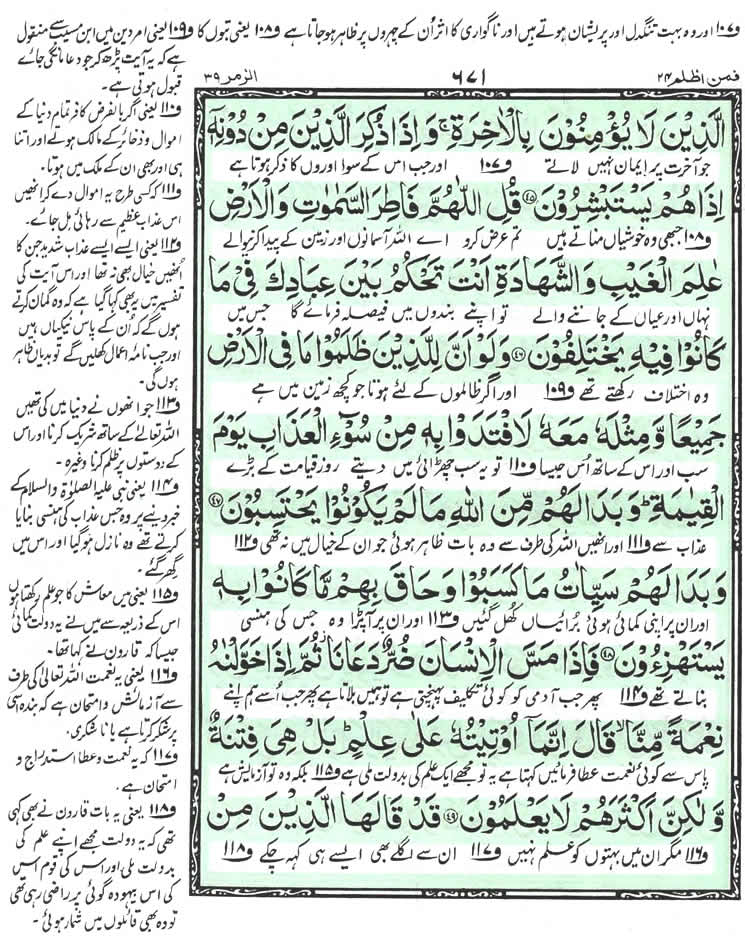 و۱۰۷ اور وہ بہت تنگدل اور پریشان ہوتے ہیں اور ناگواری کا اثر اُن کے چہروں پر ظاہر ہو جاتا ہے و۱۰۸ یعنی بتوں کا و۱۰۹ یعنی امرِ دین میں ابن مسیب سے منقول
ہے کہ یہ آیت پڑھ کر جو دعا مانگی جائے
قبول ہوتی ہے۔
فمن اظلم ۲۴
۶۷۱
الزمر ۳۹
الَّذِيْنَ لَا يُؤْمِنُوْنَ بِالْاٰخِرَةِ ۚ وَاِذَا ذُكِرَ الَّذِيْنَ مِنْ دُوْنِهٖٓ
جو آخرت پر ایمان نہیں لاتے و۱۰۷ اور جب اس کے سوا اوروں کا ذکر ہوتا ہے
اِذَا هُمْ يَسْتَبْشِرُوْنَ ﴿۴۵﴾ قُلِ اللّٰهُمَّ فَاطِرَ السَّمٰوٰتِ وَالْاَرْضِ
و۱۰۸ جبھی وہ خوشیاں مناتے ہیں تم عرض کرو اے اللہ آسمانوں اور زمین کے پیدا کرنے والے
عٰلِمَ الْغَيْبِ وَالشَّهَادَةِ اَنْتَ تَحْكُمُ بَيْنَ عِبَادِكَ فِيْ مَا
نہاں اور عیاں کے جاننے والے تو اپنے بندوں میں فیصلہ فرمائے گا جس میں
كَانُوْا فِيْهِ يَخْتَلِفُوْنَ ﴿۴۶﴾ وَلَوْ اَنَّ لِلَّذِيْنَ ظَلَمُوْا مَا فِي الْاَرْضِ
وہ اختلاف رکھتے تھے و۱۰۹ اور اگر ظالموں کے لئے ہوتا جو کچھ زمین میں ہے
جَمِيْعًا وَّمِثْلَهٗ مَعَهٗ لَافْتَدَوْا بِهٖ مِنْ سُوْٓءِ الْعَذَابِ يَوْمَ
سب اور اس کے ساتھ اُس جیسا و۱۱۰ تو یہ سب چھڑائی میں دیتے روزِ قیامت کے بڑے
الْقِيٰمَةِ ؕ وَبَدَا لَهُمْ مِّنَ اللّٰهِ مَا لَمْ يَكُوْنُوْا يَحْتَسِبُوْنَ ﴿۴۷﴾
عذاب سے و۱۱۱ اور انھیں اللہ کی طرف سے وہ بات ظاہر ہوئی جو ان کے خیال میں نہ تھی و۱۱۲
وَبَدَا لَهُمْ سَيِّاٰتُ مَا كَسَبُوْا وَحَاقَ بِهِمْ مَّا كَانُوْا بِهٖ
اور ان پر اپنی کمائی ہوئی برائیاں کھل گئیں و۱۱۳ اور ان پر آپڑا وہ جس کی ہنسی
يَسْتَهْزِءُوْنَ ﴿۴۸﴾ فَاِذَا مَسَّ الْاِنْسَانَ ضُرٌّ دَعَانَا ثُمَّ اِذَا خَوَّلْنٰهُ
بناتے تھے و۱۱۴ پھر جب آدمی کو کوئی تکلیف پہنچتی ہے تو ہمیں بلاتا ہے پھر جب اُسے ہم اپنے
نِعْمَةً مِّنَّا ۙ قَالَ اِنَّمَآ اُوْتِيْتُهٗ عَلٰى عِلْمٍ ؕ بَلْ هِيَ فِتْنَةٌ
پاس سے کوئی نعمت عطا فرمائیں کہتا ہے یہ تو مجھے ایک علم کی بدولت ملی ہے و۱۱۵ بلکہ وہ تو آزمائش ہے
وَّلٰكِنَّ اَكْثَرَهُمْ لَا يَعْلَمُوْنَ ﴿۴۹﴾ قَدْ قَالَهَا الَّذِيْنَ مِنْ
و۱۱۶ مگر ان میں بہتوں کو علم نہیں و۱۱۷ ان سے اگلے بھی ایسے ہی کہہ چکے و۱۱۸
و۱۱۰ یعنی اگر بالفرض کافر تمام دنیا کے
اموال و ذخائر کے مالک ہوتے اور اتنا
ہی اور بھی ان کے ملک میں ہوتا۔
و۱۱۱ کہ کسی طرح یہ اموال دے کر انھیں
اس عذاب عظیم سے رہائی مل جائے۔
و۱۱۲ یعنی ایسے ایسے عذاب شدید جن کا
اُنھیں خیال بھی نہ تھا اور اس آیت کی
تفسیر میں یہ بھی کہا گیا ہے کہ وہ گمان کرتے
ہوں گے کہ اُن کے پاس نیکیاں ہیں
اور جب نامۂ اعمال کھلیں گے تو بدیاں ظاہر
ہوں گی۔
و۱۱۳ جو انھوں نے دنیا میں کی تھیں
اللہ تعالیٰ کے ساتھ شریک کرنا اور اس
کے دوستوں پر ظلم کرنا وغیرہ۔
و۱۱۴ یعنی نبی علیہ الصلوٰۃ والسلام کے
خبر دینے پر وہ جس عذاب کی ہنسی بنایا
کرتے تھے وہ نازل ہو گیا اور اس میں
گھر گئے۔
و۱۱۵ یعنی میں معاش کا جو علم رکھتا ہوں
اس کے ذریعہ سے میں نے یہ دولت کمائی
جیسا کہ قارون نے کہا تھا۔
و۱۱۶ یعنی یہ نعمت اللہ تعالیٰ کی طرف
سے آزمائش و امتحان ہے کہ بندہ اسی
پر شکر کرتا ہے یا ناشکری۔
و۱۱۷ کہ یہ نعمت و عطا استدراج و
امتحان ہے۔
و۱۱۸ یعنی یہ بات قارون نے بھی کہی
تھی کہ یہ دولت مجھے اپنے علم کی
بدولت ملی اور اس کی قوم اس
کی اس بیہودہ گوئی پر راضی رہی تھی
تو وہ بھی قائلوں میں شمار ہوئی۔